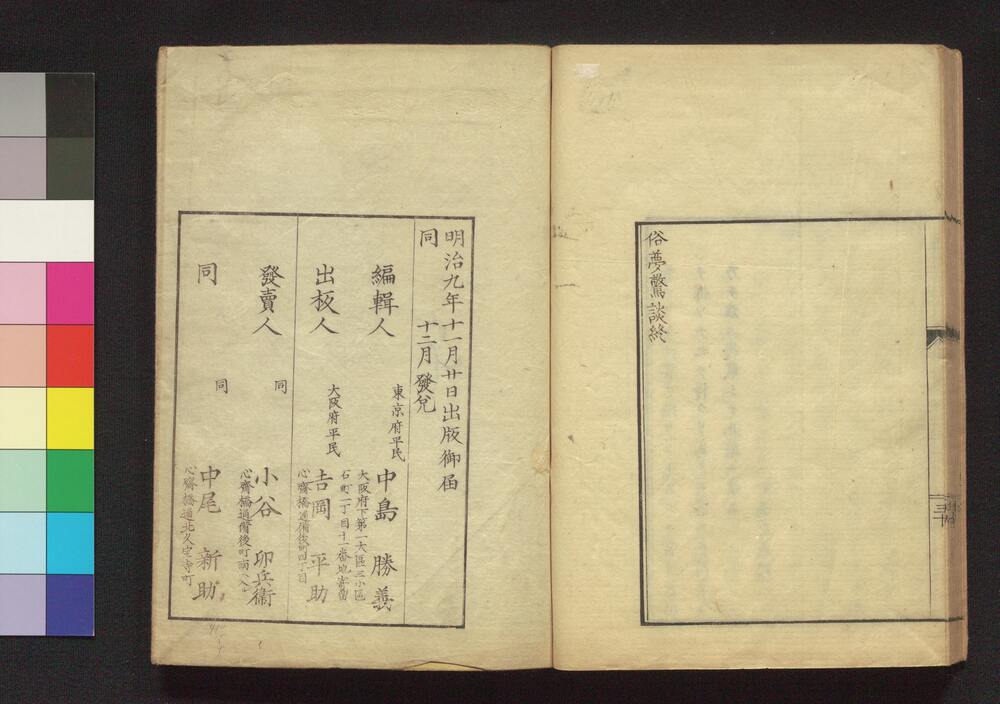 俗夢驚談終
三十
明治九年十一月廿日出版御届
同 十二月發兌
編輯人 東京府平民 中島勝義
大阪府下第一大區三小區
石町二丁目十一番地寄留
出板人 大阪府平民 吉岡平助
心齋橋通備後町四丁目
發賣人 同 小谷卯兵衞
心齋橋通備後町南ヘ入
同 同 中尾新助
心齋橋通北久宝寺町